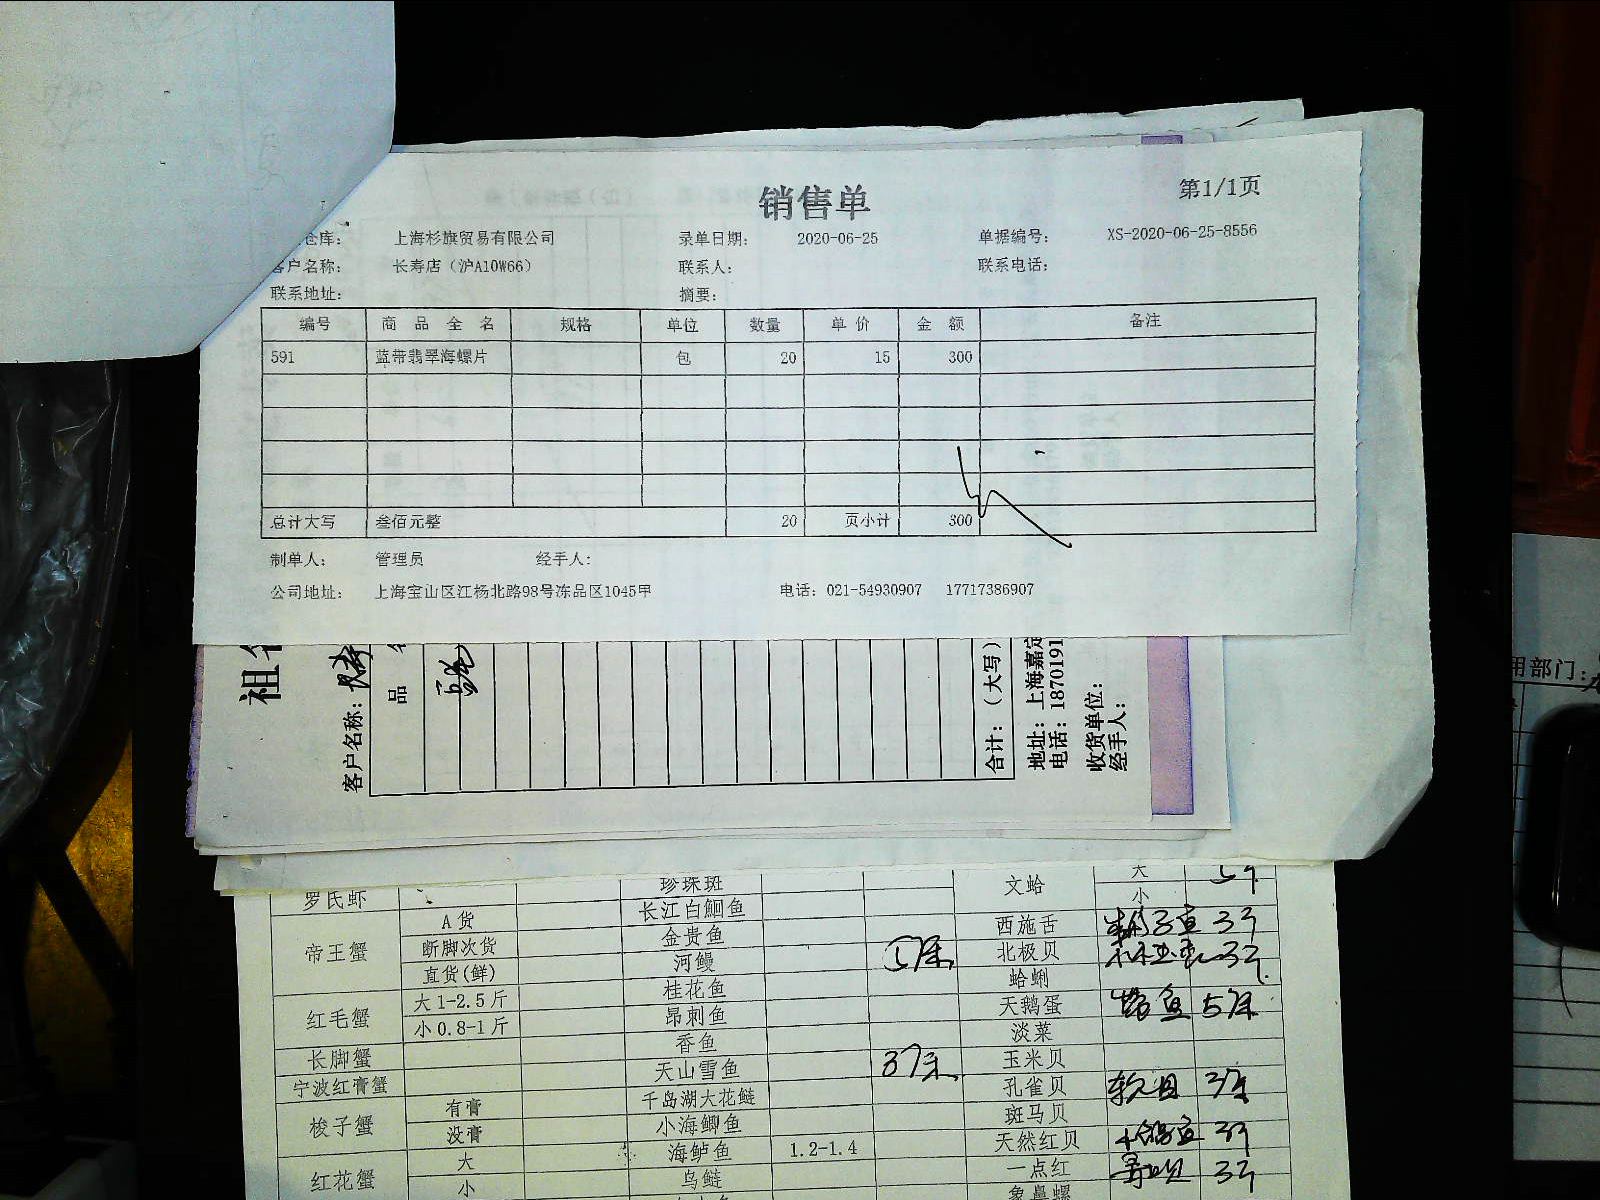 销售单
第1/1页
仓库： 上海杉旗贸易有限公司 录单日期： 2020-06-25 单据编号： XS-2020-06-25-8556
客户名称： 长寿店（沪A10W66） 联系人： 联系电话：
联系地址： 摘要：
编号 商品全名 规格 单位 数量 单价 金额 备注
591 蓝带翡翠海螺片 包 20 15 300
总计大写 叁佰元整 20 页小计 300
制单人： 管理员 经手人：
公司地址： 上海宝山区江杨北路98号冻品区1045甲 电话：021-54930907 17717386907
祖
客户名称：长寿
品 名
合计：（大写）
地址：上海嘉定
电话：1870191
收货单位：
经手人：
用部门：
罗氏虾 珍珠斑 文蛤 大
长江白鮰鱼 小
帝王蟹 A货 金贵鱼 西施舌 3斤
断脚次货 河鳗 5条 北极贝
直货(鲜) 桂花鱼 蛤蜊
红毛蟹 大1-2.5斤 昂刺鱼 天鹅蛋 鱼 5条
小0.8-1斤 香鱼 淡菜
长脚蟹 天山雪鱼 3条 玉米贝
宁波红膏蟹 千岛湖大花鲢 孔雀贝 3条
梭子蟹 有膏 小海鲫鱼 斑马贝
没膏 海鲈鱼 1.2-1.4 天然红贝 3斤
红花蟹 大 鸟鲢 一点红 3斤
小 象鼻螺